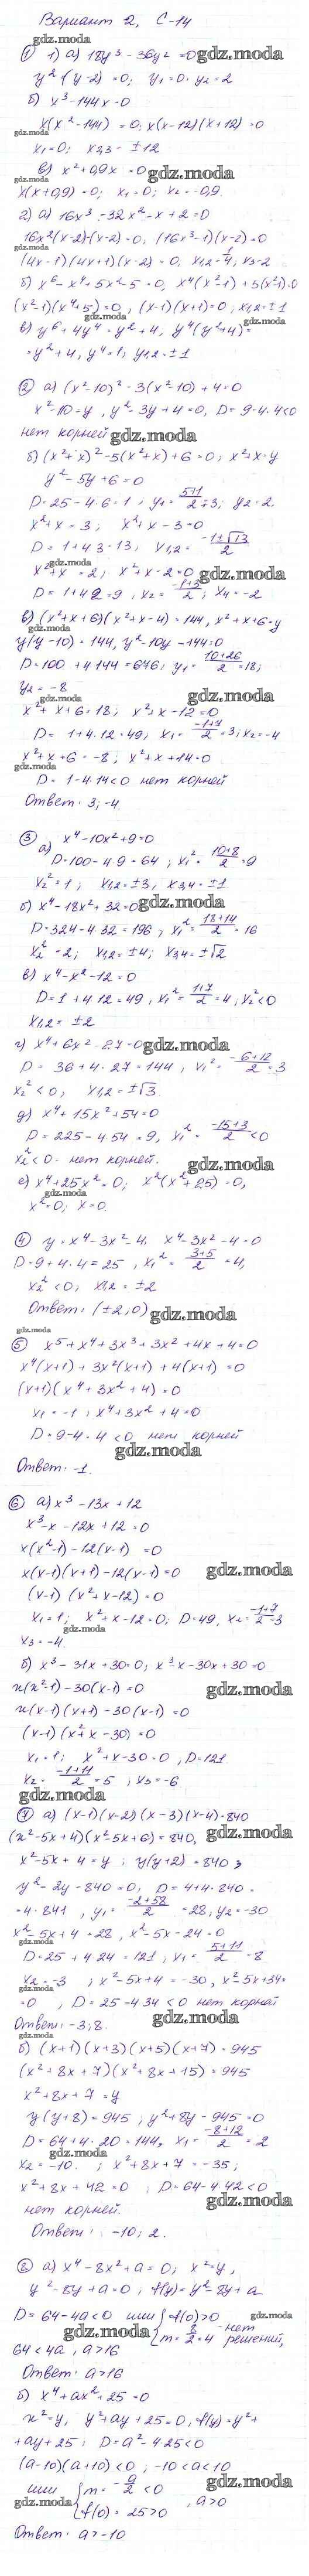 Вариант 2, С-14
gdz.moda
① 1) а) 18y³ - 36y² = 0
gdz.moda
y²·(y-2) = 0; y₁ = 0. y₂ = 2
б) x³ - 144x = 0
x(x² - 144) = 0; x(x-12)(x+12) = 0
gdz.moda
x₁ = 0; x₂,₃ = ±12
в) x² + 0,9x = 0
gdz.moda
x(x+0,9) = 0; x₁ = 0; x₂ = -0,9
2) а) 16x³ - 32x² - x + 2 = 0
gdz.moda
16x²(x-2) - (x-2) = 0; (16x²-1)(x-2) = 0
(4x-1)(4x+1)(x-2) = 0, x₁,₂ = 1/4, x₃ = 2
gdz.moda
б) x⁶ - x⁴ + 5x² - 5 = 0, x⁴(x²-1) + 5(x²-1) = 0
(x²-1)(x⁴+5) = 0, (x-1)(x+1) = 0, x₁,₂ = ±1
gdz.moda
в) y⁶ + 4y⁴ = y² + 4, y⁴(y²+4) =
gdz.moda
= y² + 4, y⁴ = 1; y₁,₂ = ±1
② а) (x²-10)² - 3(x²-10) + 4 = 0
x² - 10 = y, y² - 3y + 4 = 0, D = 9 - 4·4 < 0
нет корней gdz.moda
б) (x²+x)² - 5(x²+x) + 6 = 0; x² + x = y
y² - 5y + 6 = 0
D = 25 - 4·6 = 1; y₁ = (5+1)/2 = 3; y₂ = 2.
gdz.moda
x² + x = 3; x² + x - 3 = 0
D = 1 + 4·3 = 13; x₁,₂ = (-1±√13)/2
gdz.moda
x² + x = 2; x² + x - 2 = 0
gdz.moda
D = 1 + 4·2 = 9, x₂ = (-1+3)/2; x₄ = -2
в) (x²+x+6)(x²+x-4) = 144, x²+x+6 = y
gdz.moda
y(y-10) = 144, y² - 10y - 144 = 0
D = 100 + 4·144 = 676; y₁ = (10+26)/2 = 18;
y₂ = -8
gdz.moda
gdz.moda
x² + x + 6 = 18; x² + x - 12 = 0
D = 1 + 4·12 = 49, x₁ = (-1+7)/2 = 3; x₂ = -4
x² + x + 6 = -8; x² + x + 14 = 0
gdz.moda
gdz.moda
D = 1 - 4·14 < 0 нет корней
Ответ: 3; -4.
③ x⁴ - 10x² + 9 = 0
gdz.moda
а) D = 100 - 4·9 = 64; x₁² = (10+8)/2 = 9
x₂² = 1; x₁,₂ = ±3, x₃,₄ = ±1
б) x⁴ - 18x² + 32 = 0 gdz.moda
D = 324 - 4·32 = 196, x₁² = (18+14)/2 = 16
gdz.moda
x₂² = 2; x₁,₂ = ±4; x₃,₄ = ±√2
в) x⁴ - x² - 12 = 0
D = 1 + 4·12 = 49, x₁² = (1+7)/2 = 4; x₂² < 0
x₁,₂ = ±2
г) x⁴ + 6x² - 27 = 0 gdz.moda
D = 36 + 4·27 = 144, x₁² = (-6+12)/2 = 3
x₂² < 0; x₁,₂ = ±√3
gdz.moda
д) x⁴ + 15x² + 54 = 0
D = 225 - 4·54 = 9, x₁² = (-15+3)/2 < 0
x₂² < 0. нет корней.
gdz.moda
е) x⁴ + 25x² = 0; x²(x²+25) = 0,
gdz.moda
x² = 0; x = 0.
④ y = x⁴ - 3x² - 4. x⁴ - 3x² - 4 = 0
gdz.moda
D = 9 + 4·4 = 25, x₁² = (3+5)/2 = 4,
x₂² < 0; x₁,₂ = ±2
Ответ: (±2; 0) gdz.moda
gdz.moda
⑤ x⁵ + x⁴ + 3x³ + 3x² + 4x + 4 = 0
x⁴(x+1) + 3x²(x+1) + 4(x+1) = 0
(x+1)(x⁴+3x²+4) = 0
x₁ = -1; x⁴ + 3x² + 4 = 0
D = 9 - 4·4 < 0, нет корней
gdz.moda
Ответ: -1.
⑥ а) x³ - 13x + 12
x³ - x - 12x + 12 = 0
x(x²-1) - 12(x-1) = 0
x(x-1)(x+1) - 12(x-1) = 0
gdz.moda
(x-1)(x²+x-12) = 0
x₁ = 1; x² + x - 12 = 0; D = 49, x₂ = (-1+7)/2 = 3
gdz.moda
x₃ = -4.
б) x³ - 31x + 30 = 0; x³ - x - 30x + 30 = 0
x(x²-1) - 30(x-1) = 0
gdz.moda
x(x-1)(x+1) - 30(x-1) = 0
(x-1)(x²+x-30) = 0
x₁ = 1; x² + x - 30 = 0, D = 121
x₂ = (-1+11)/2 = 5; x₃ = -6
gdz.moda
⑦ а) (x-1)(x-2)(x-3)(x-4) = 840
(x²-5x+4)(x²-5x+6) = 840,
gdz.moda
x² - 5x + 4 = y; y(y+2) = 840;
y² - 2y - 840 = 0; D = 4 + 4·840 =
= 4·841, y₁ = (-2+58)/2 = 28, y₂ = -30
x² - 5x + 4 = 28, x² - 5x - 24 = 0
gdz.moda
D = 25 + 4·24 = 121, x₁ = (5+11)/2 = 8
gdz.moda
x₂ = -3; x² - 5x + 4 = -30, x² - 5x + 34 =
= 0, D = 25 - 4·34 < 0 нет корней
gdz.moda
Ответ: -3; 8.
gdz.moda
б) (x+1)(x+3)(x+5)(x+7) = 945
(x²+8x+7)(x²+8x+15) = 945
x² + 8x + 7 = y
y(y+8) = 945; y² + 8y - 945 = 0
D = 64 + 4·20 = 144, x₁ = (-8+12)/2 = 2
gdz.moda
x₂ = -10.; x² + 8x + 7 = -35;
x² + 8x + 42 = 0; D = 64 - 4·42 < 0
gdz.moda
нет корней.
Ответ: -10; 2.
⑧ а) x⁴ - 8x² + a = 0; x² = y,
y² - 8y + a = 0, f(y) = y² - 8y + a
D = 64 - 4a < 0 или { f(0) > 0
gdz.moda
gdz.moda
m = 8/2 = 4 - нет решений,
64 < 4a, a > 16
Ответ: a > 16
б) x⁴ + ax² + 25 = 0
x² = y, y² + ay + 25 = 0, f(y) = y² +
+ ay + 25; D = a² - 4·25 < 0
(a-10)(a+10) < 0; -10 < a < 10
gdz.moda
или { m = -a/2 < 0
f(0) = 25 > 0, a > 0
gdz.moda
Ответ: a > -10